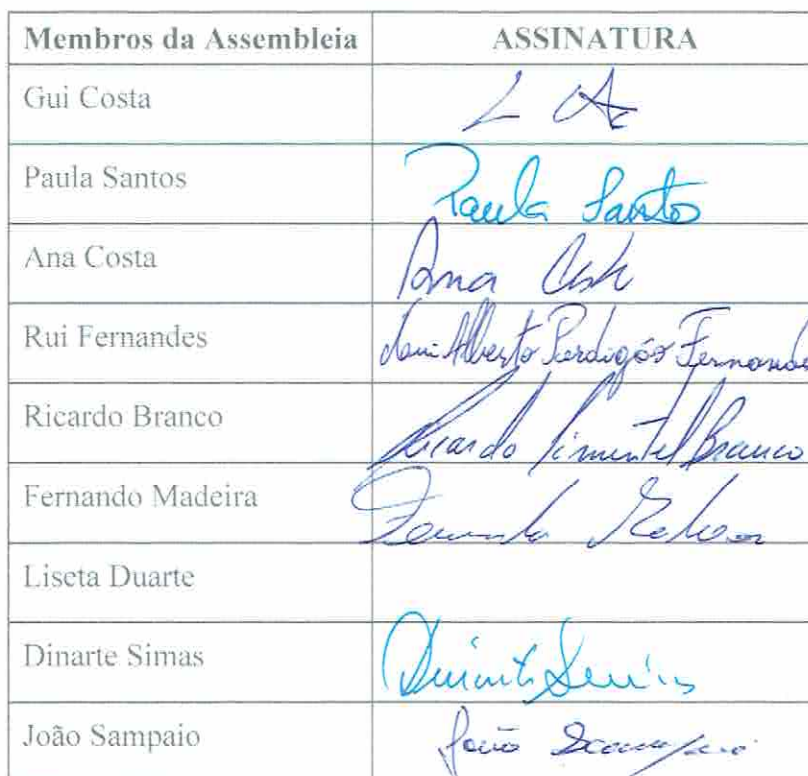 Membros da Assembleia ASSINATURA
Gui Costa
Paula Santos Paula Santos
Ana Costa Ana Costa
Rui Fernandes Rui Alberto Perdigão Fernandes
Ricardo Branco Ricardo Pimentel Branco
Fernando Madeira Fernando
Liseta Duarte
Dinarte Simas Dinarte Simas
João Sampaio João Sampaio